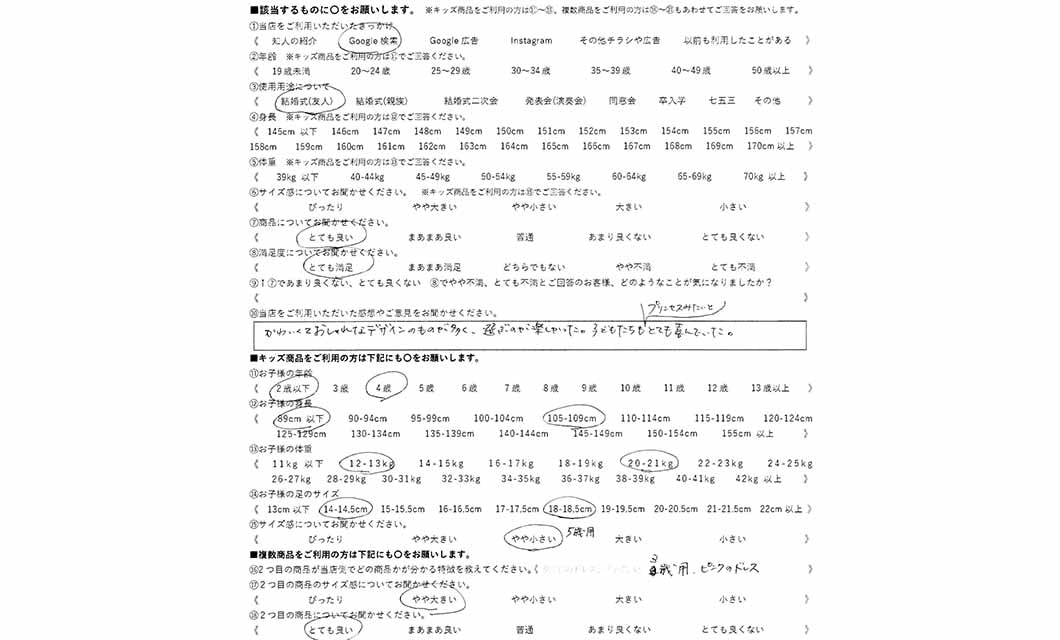 ■該当するものに〇をお願いします。 ※キッズ商品をご利用の方は⑪〜⑮、複数商品をご利用の方は⑯〜㉑もあわせてご回答をお願いします。
①当店をご利用いただいたきっかけ
《 知人の紹介 Google検索 Google広告 Instagram その他チラシや広告 以前も利用したことがある 》
②年齢 ※キッズ商品をご利用の方は⑪でご回答ください。
《 19歳未満 20〜24歳 25〜29歳 30〜34歳 35〜39歳 40〜49歳 50歳以上 》
③使用用途について
《 結婚式(友人) 結婚式(親族) 結婚式二次会 発表会(演奏会) 同窓会 卒入学 七五三 その他 》
④身長 ※キッズ商品をご利用の方は⑫でご回答ください。
《 145cm 以下 146cm 147cm 148cm 149cm 150cm 151cm 152cm 153cm 154cm 155cm 156cm 157cm
158cm 159cm 160cm 161cm 162cm 163cm 164cm 165cm 166cm 167cm 168cm 169cm 170cm 以上 》
⑤体重 ※キッズ商品をご利用の方は⑬でご回答ください。
《 39kg 以下 40-44kg 45-49kg 50-54kg 55-59kg 60-64kg 65-69kg 70kg 以上 》
⑥サイズ感についてお聞かせください。 ※キッズ商品をご利用の方は⑮でご回答ください。
《 ぴったり やや大きい やや小さい 大きい 小さい 》
⑦商品についてお聞かせください。
《 とても良い まあまあ良い 普通 あまり良くない とても良くない 》
⑧満足度についてお聞かせください。
《 とても満足 まあまあ満足 どちらでもない やや不満 とても不満 》
⑨⑦であまり良くない、とても良くない ⑧でやや不満、とても不満とご回答のお客様、どのようなことが気になりましたか？
《 》
⑩当店をご利用いただいた感想やご意見をお聞かせください。 プリンセスみたいと
かわいくておしゃれなデザインのものが多く、選ぶのが楽しかった。子どもたちもとても喜んでいた。
■キッズ商品をご利用の方は下記にも〇をお願いします。
⑪お子様の年齢
《 2歳以下 3歳 4歳 5歳 6歳 7歳 8歳 9歳 10歳 11歳 12歳 13歳以上 》
⑫お子様の身長
《 89cm 以下 90-94cm 95-99cm 100-104cm 105-109cm 110-114cm 115-119cm 120-124cm
125-129cm 130-134cm 135-139cm 140-144cm 145-149cm 150-154cm 155cm 以上 》
⑬お子様の体重
《 11kg 以下 12-13kg 14-15kg 16-17kg 18-19kg 20-21kg 22-23kg 24-25kg
26-27kg 28-29kg 30-31kg 32-33kg 34-35kg 36-37kg 38-39kg 40-41kg 42kg 以上 》
⑭お子様の足のサイズ
《 13cm 以下 14-14.5cm 15-15.5cm 16-16.5cm 17-17.5cm 18-18.5cm 19-19.5cm 20-20.5cm 21-21.5cm 22cm 以上 》
⑮サイズ感についてお聞かせください。
《 ぴったり やや大きい やや小さい 5歳用 大きい 小さい 》
■複数商品をご利用の方は下記にも〇をお願いします。
⑯2つ目の商品が当店側でどの商品かが分かる特徴を教えてください。《 3歳用、ピンクのドレス 》
⑰2つ目の商品のサイズ感についてお聞かせください。
《 ぴったり やや大きい やや小さい 大きい 小さい 》
⑱2つ目の商品についてお聞かせください。
《 とても良い まあまあ良い 普通 あまり良くない とても良くない 》